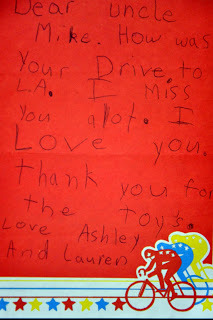 Dear uncle
Mike. How was
Your Drive to
L.A. I miss
You alot. I
Love you.
thank you for
the toy's.
Love Ashley
And Lauren